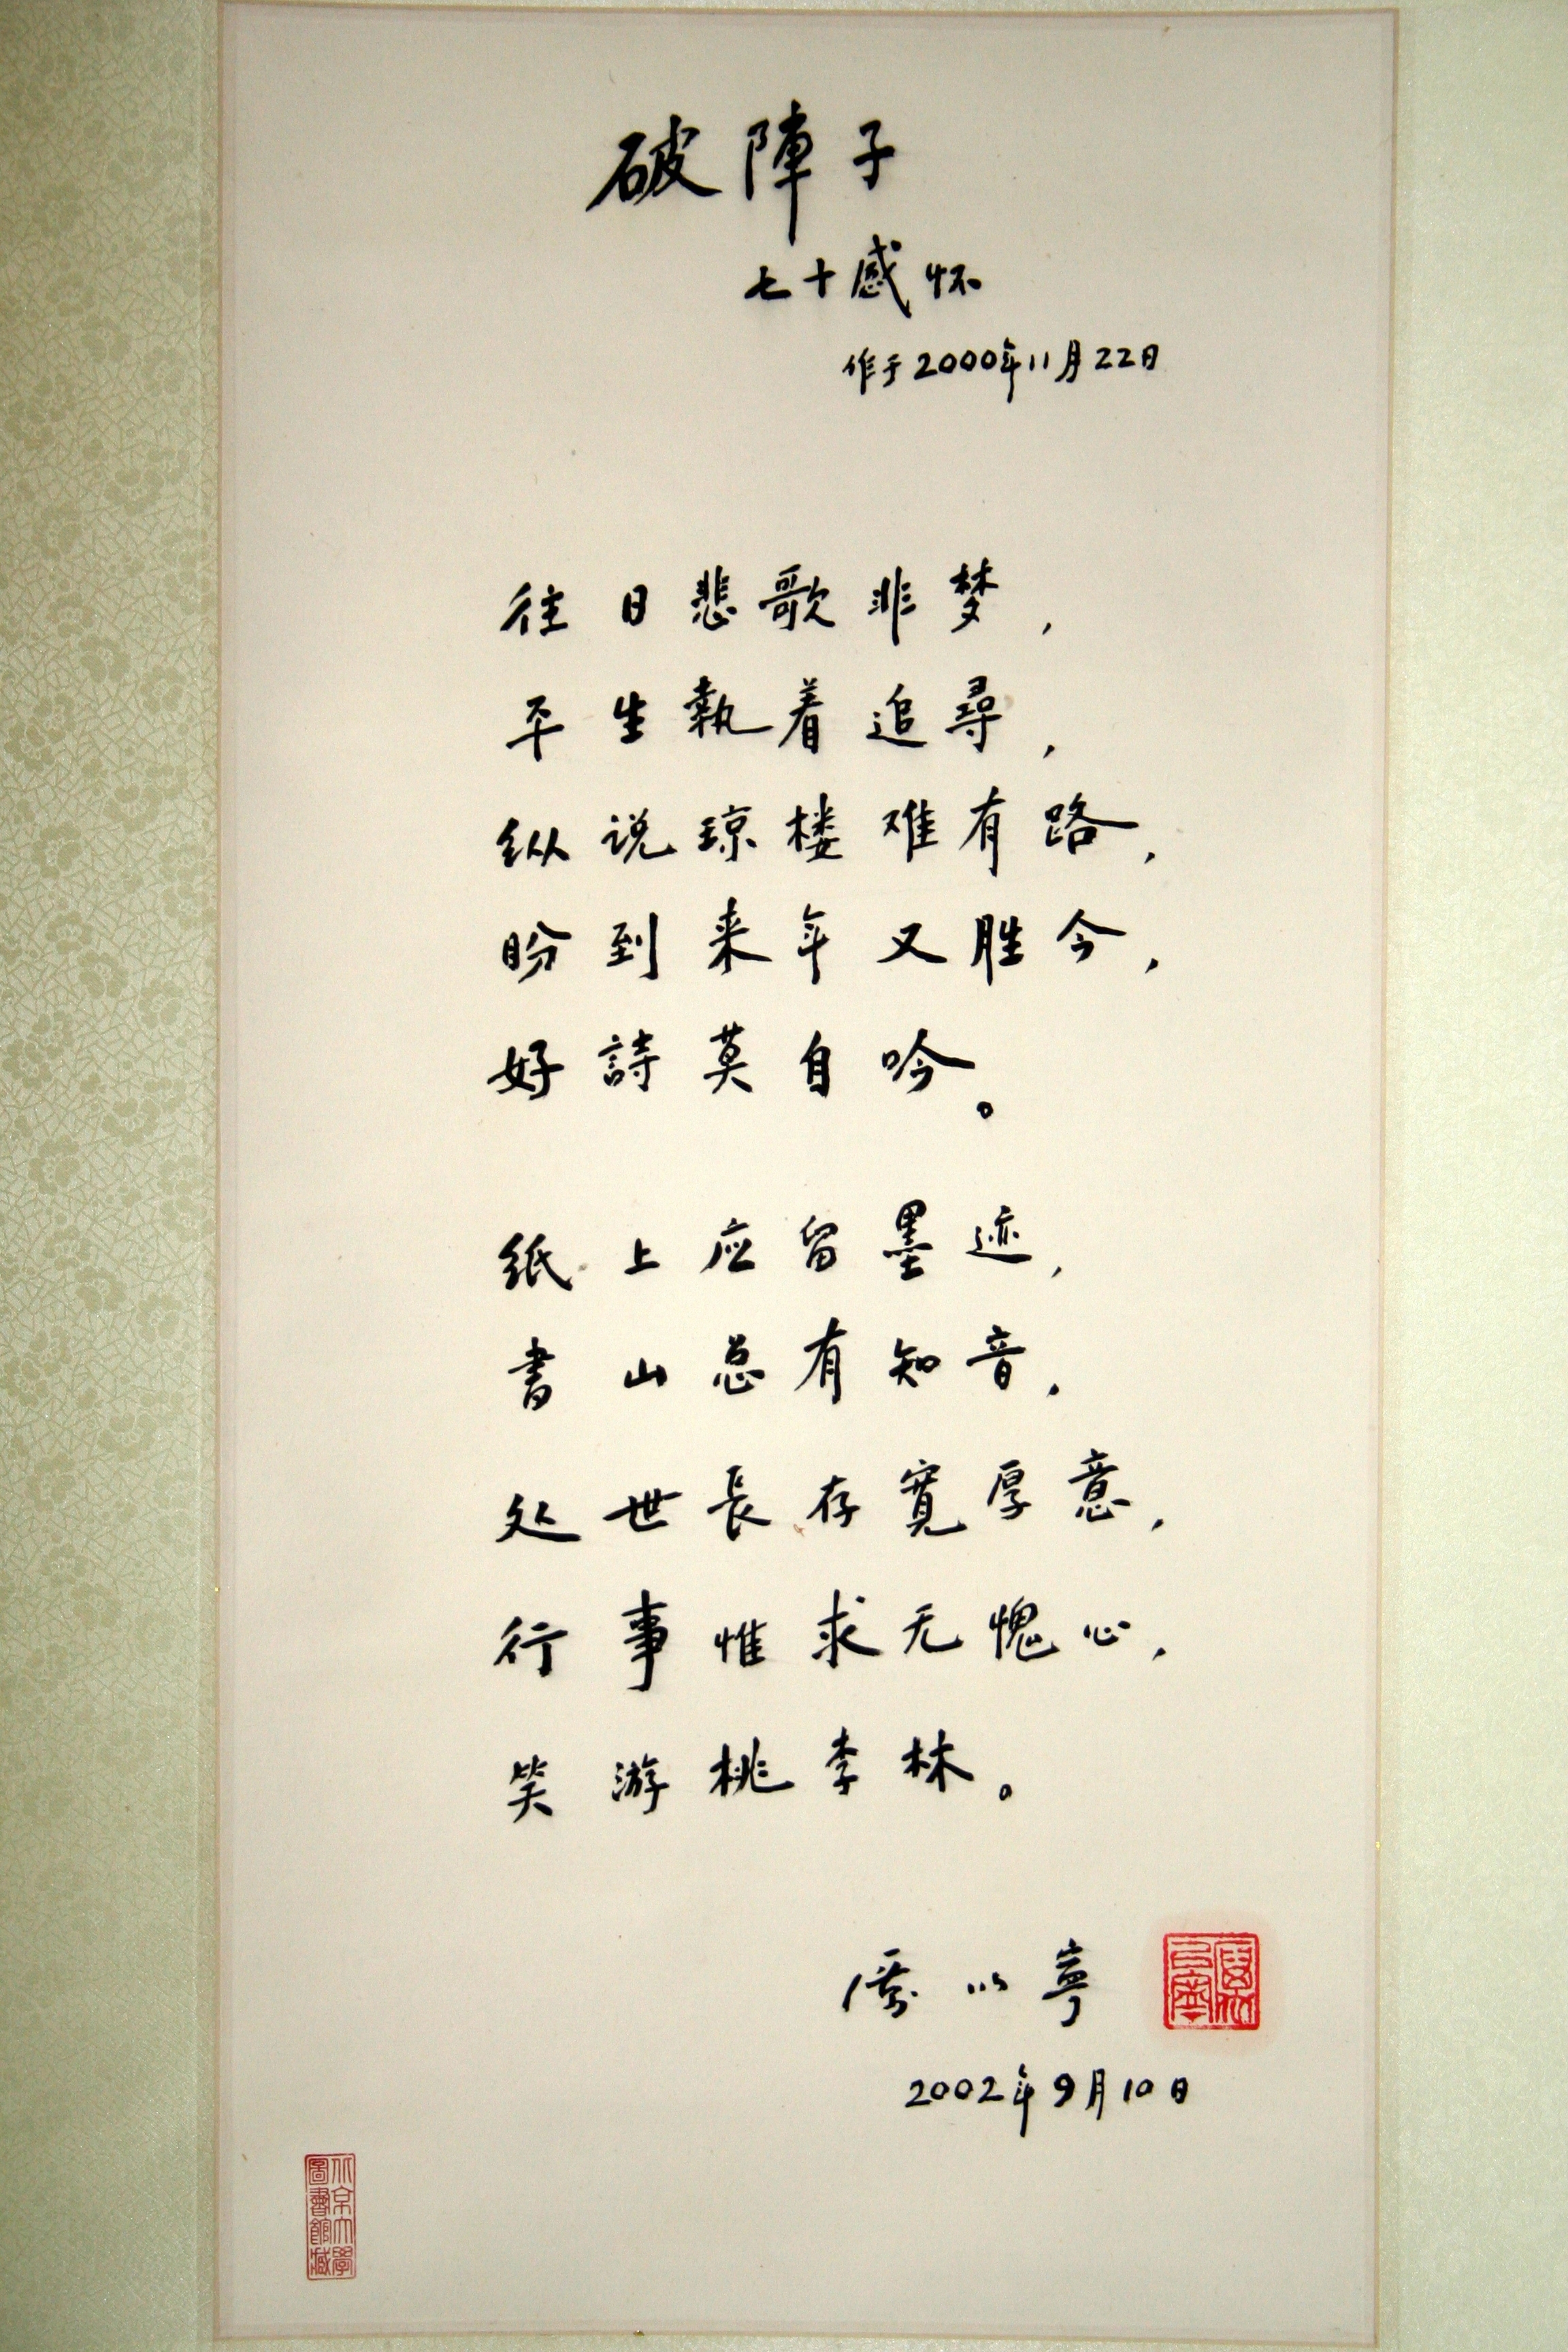 破陣子
七十感怀
作于2000年11月22日
往日悲歌非梦，
平生執着追尋，
纵说琼楼难有路，
盼到来年又胜今，
好詩莫自吟。
纸上应留墨迹，
书山总有知音，
处世長存寬厚意，
行事惟求无愧心，
笑游桃李林。
厉以寧
2002年9月10日
北京大學
圖書館藏